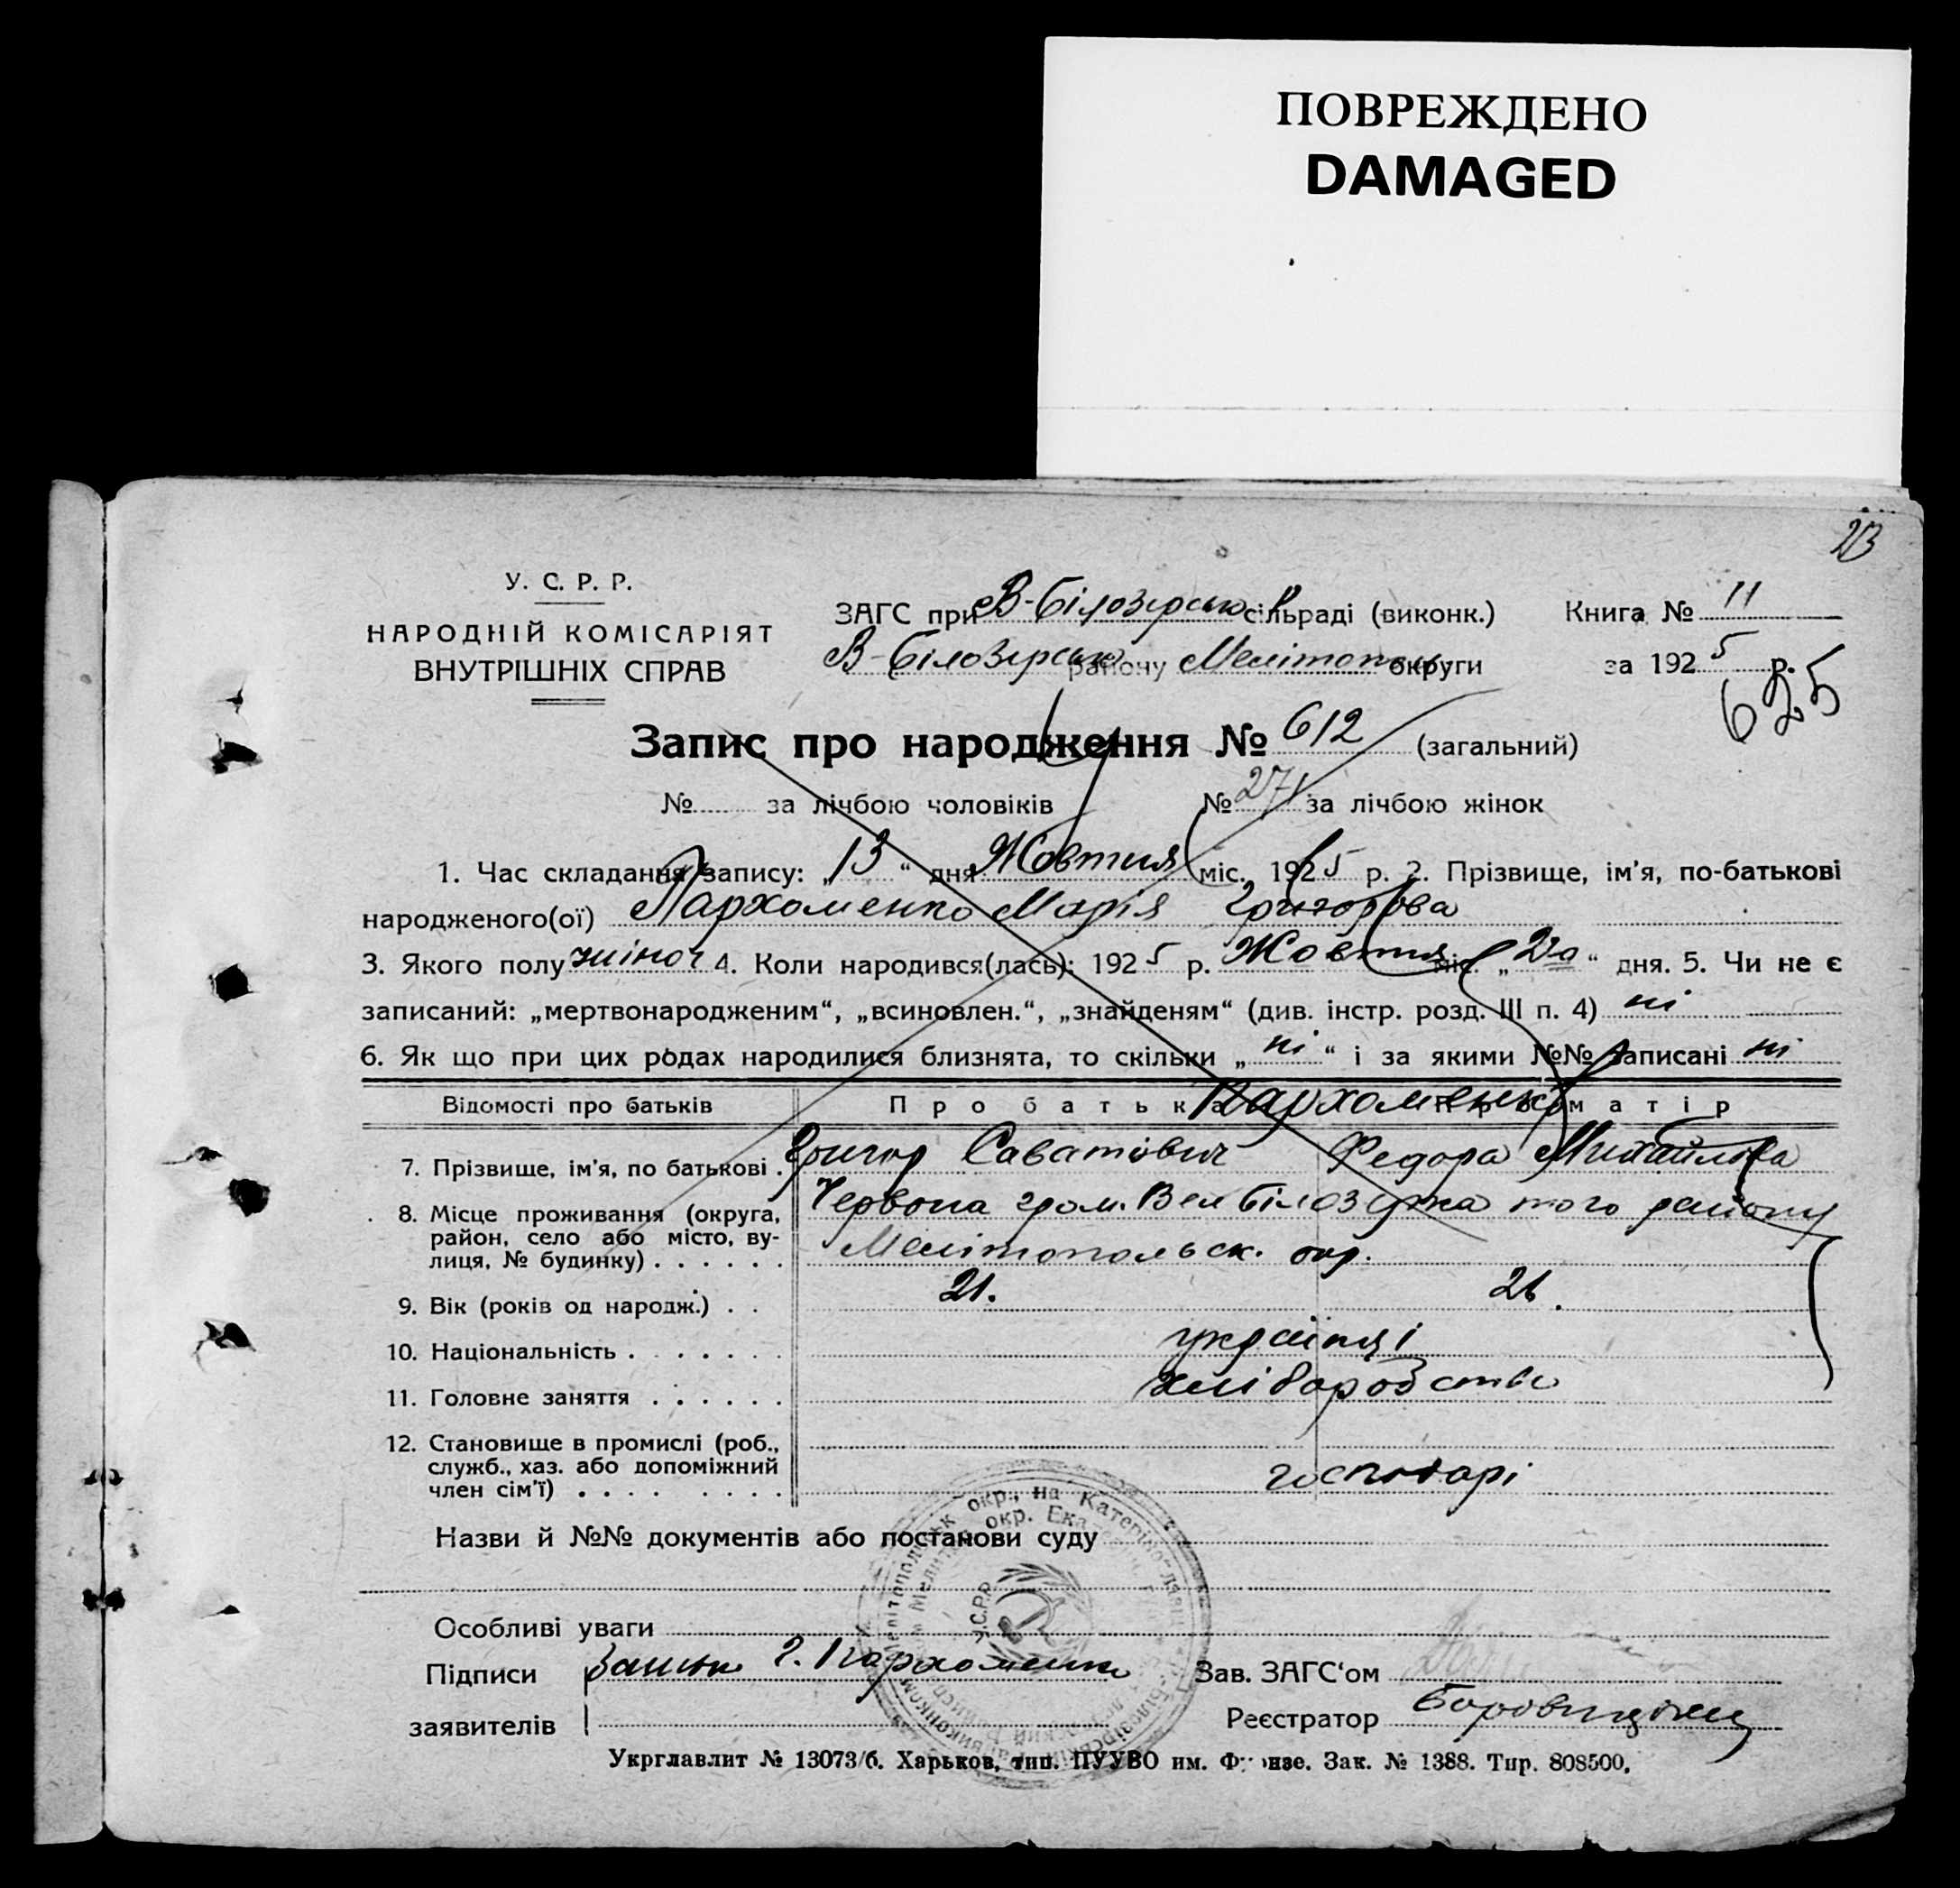 ПОВРЕЖДЕНО
DAMAGED
23
У. С. Р. Р.
НАРОДНІЙ КОМІСАРІЯТ
ВНУТРІШНІХ СПРАВ
ЗАГС при В-Білозерськ сільраді (виконк.) Книга № 11
В-Білозерськ району Мелітопол округи за 1925 р.
625
Запис про народження № 612 (загальний)
№ за лічбою чоловіків № 271 за лічбою жінок
1. Час складання запису: „13“ дня Жовтня міс. 1925 р. 2. Прізвище, ім'я, по-батькові
народженого(ої) Пархоменко Марія Григорова
3. Якого полу жіноч 4. Коли народився(лась): 1925 р. Жовтня міс. „2го“ дня. 5. Чи не є
записаний: „мертвонародженим“, „всиновлен.“, „знайденям“ (див. інстр. розд. III п. 4) ні
6. Як що при цих родах народилися близнята, то скільки „ні“ і за якими №№ записані ні
Відомості про батьків Про батька Пархоменко Про матір
7. Прізвище, ім'я, по батькові . Григор Саватович Федора Михайлова
8. Місце проживання (округа, Червона гром. Вел Білозерка того району
район, село або місто, ву- Мелітопольск. окр.
лиця, № будинку) . . . . . .
9. Вік (років од народж.) . . 21. 21.
10. Національність . . . . . . . українці
11. Головне заняття . . . . . . хліборобство
12. Становище в промислі (роб.,
служб., хаз. або допоміжний
член сім'ї) . . . . . . . . . господарі
Назви й №№ документів або постанови суду
Особливі уваги
Підписи Г. Пархоменко Зав. ЗАГС'ом
заявителів Реєстратор
У.С.Р.Р.
Укрглавлит № 13073/б. Харьков, тип. ПУУВО им. Фрунзе. Зак. № 1388. Тир. 808500.